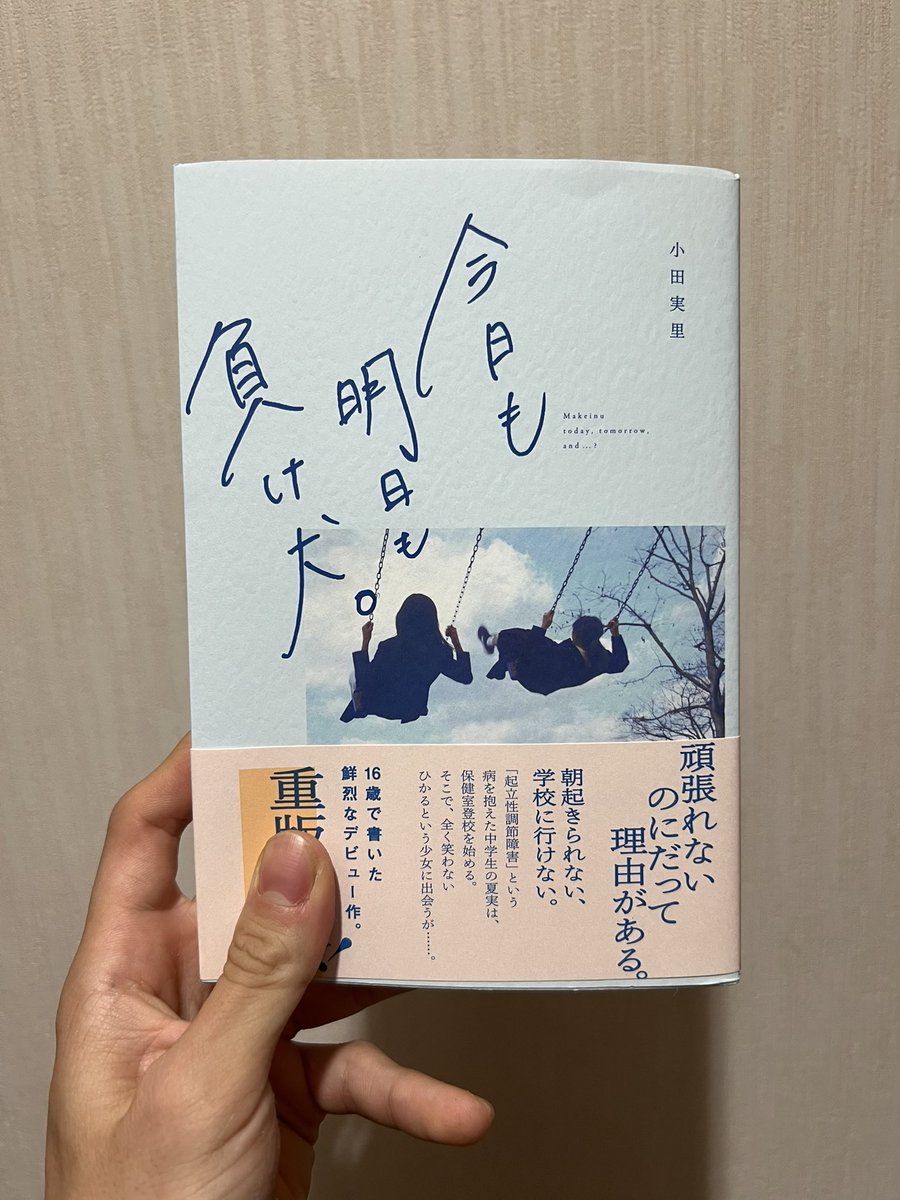 小田実里
今日も
明日も
負け犬。
Makeinu
today, tomorrow,
and ...?
頑張れない
のにだって
理由がある。
朝起きられない、
学校に行けない。
「起立性調節障害」という
病を抱えた中学生の夏実は、
保健室登校を始める。
そこで、全く笑わない
ひかるという少女に出会うが……。
16歳で書いた
鮮烈なデビュー作。
重版
!